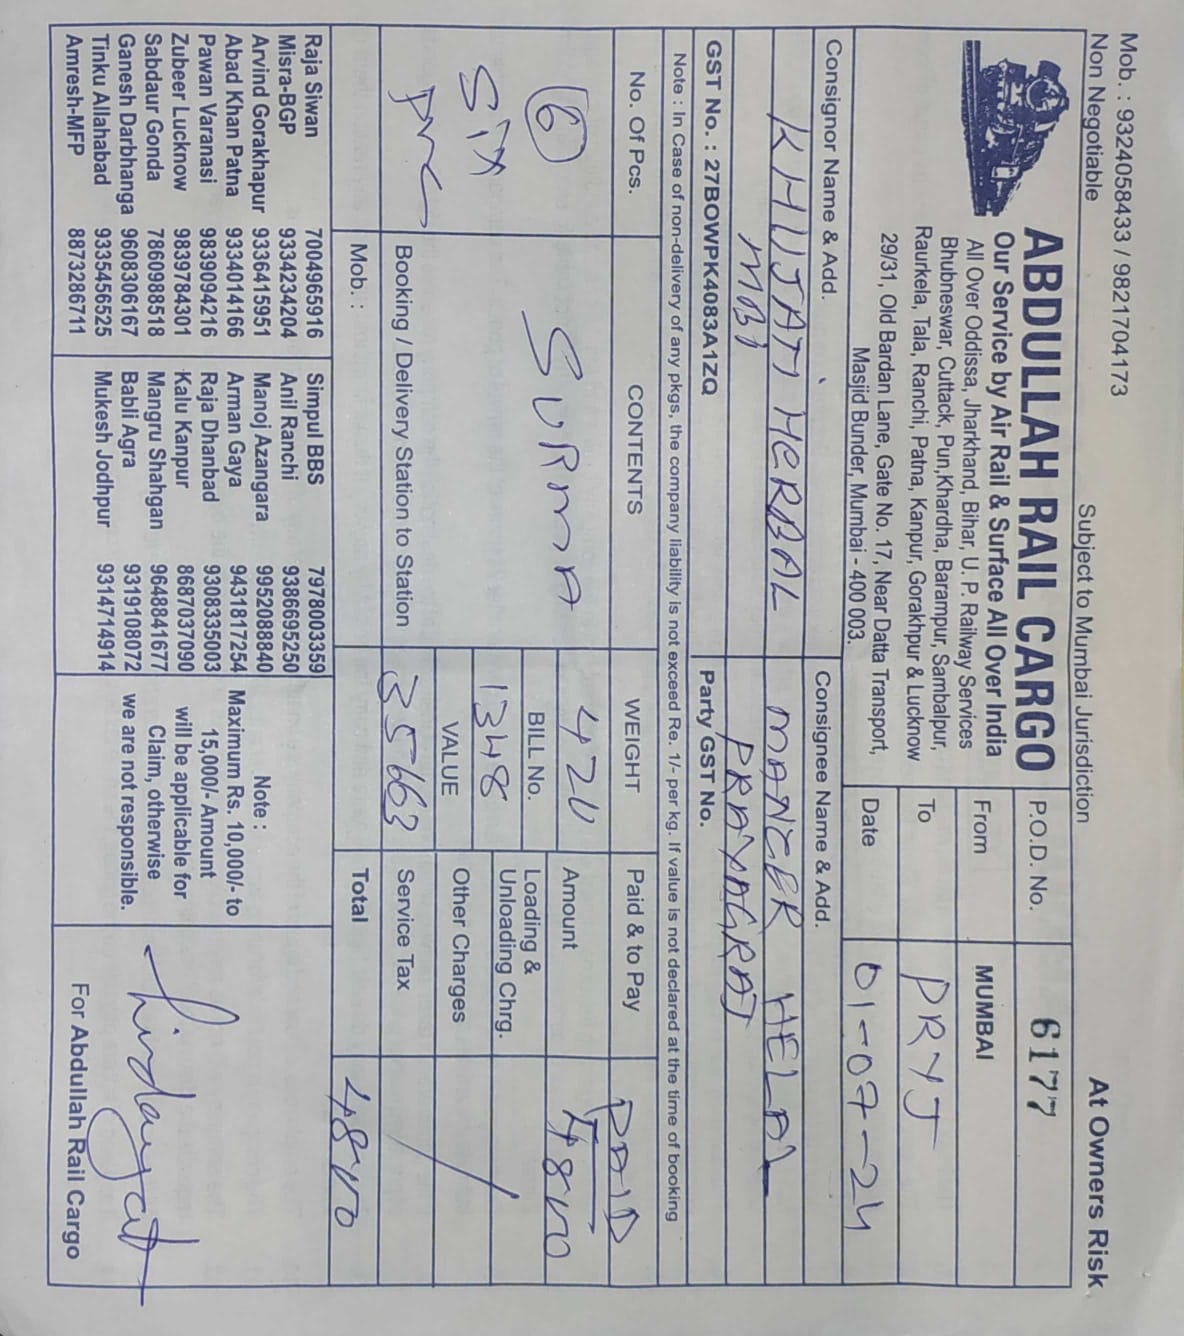 Mob. : 9324058433 / 9821704173
Non Negotiable
Subject to Mumbai Jurisdiction
At Owners Risk
ABDULLAH RAIL CARGO
Our Service by Air Rail & Surface All Over India
All Over Oddissa, Jharkhand, Bihar, U. P. Railway Services
Bhubneswar, Cuttack, Pun,Khardha, Barampur, Sambalpur,
Raurkela, Tala, Ranchi, Patna, Kanpur, Gorakhpur & Lucknow
29/31, Old Bardan Lane, Gate No. 17, Near Datta Transport,
Masjid Bunder, Mumbai - 400 003.
P.O.D. No. 6177
From MUMBAI
To PRYJ
Date 01-07-24
Consignor Name & Add.
KHUJATI HERBAL
MBI
Consignee Name & Add.
MANGER HELAL
PRAYAGRAJ
GST No. : 27BOWPK4083A1ZQ
Party GST No.
Note : In Case of non-delivery of any pkgs, the company liability is not exceed Re. 1/- per kg. If value is not declared at the time of booking
No. Of Pcs. CONTENTS WEIGHT Paid & to Pay PAID
6
Six
SURMA
420
Amount 4800
BILL No.
1348
Loading &
Unloading Chrg.
VALUE
35663
Other Charges
Booking / Delivery Station to Station
Service Tax
Mob. :
Total 4800
Raja Siwan 7004965916
Misra-BGP 9334234204
Arvind Gorakhapur 9336415951
Abad Khan Patna 9334014166
Pawan Varanasi 9839094216
Zubeer Lucknow 9839784301
Sabdaur Gonda 7860988518
Ganesh Darbhanga 9608306167
Tinku Allahabad 9335456525
Amresh-MFP 8873286711
Simpul BBS 7978003359
Anil Ranchi 9386695250
Manoj Azangara 9952088840
Arman Gaya 9431817254
Raja Dhanbad 9308335003
Kalu Kanpur 8687037090
Mangru Shahgan 9648841677
Babli Agra 9319108072
Mukesh Jodhpur 9314714914
Note :
Maximum Rs. 10,000/- to
15,000/- Amount
will be applicable for
Claim, otherwise
we are not responsible.
For Abdullah Rail Cargo